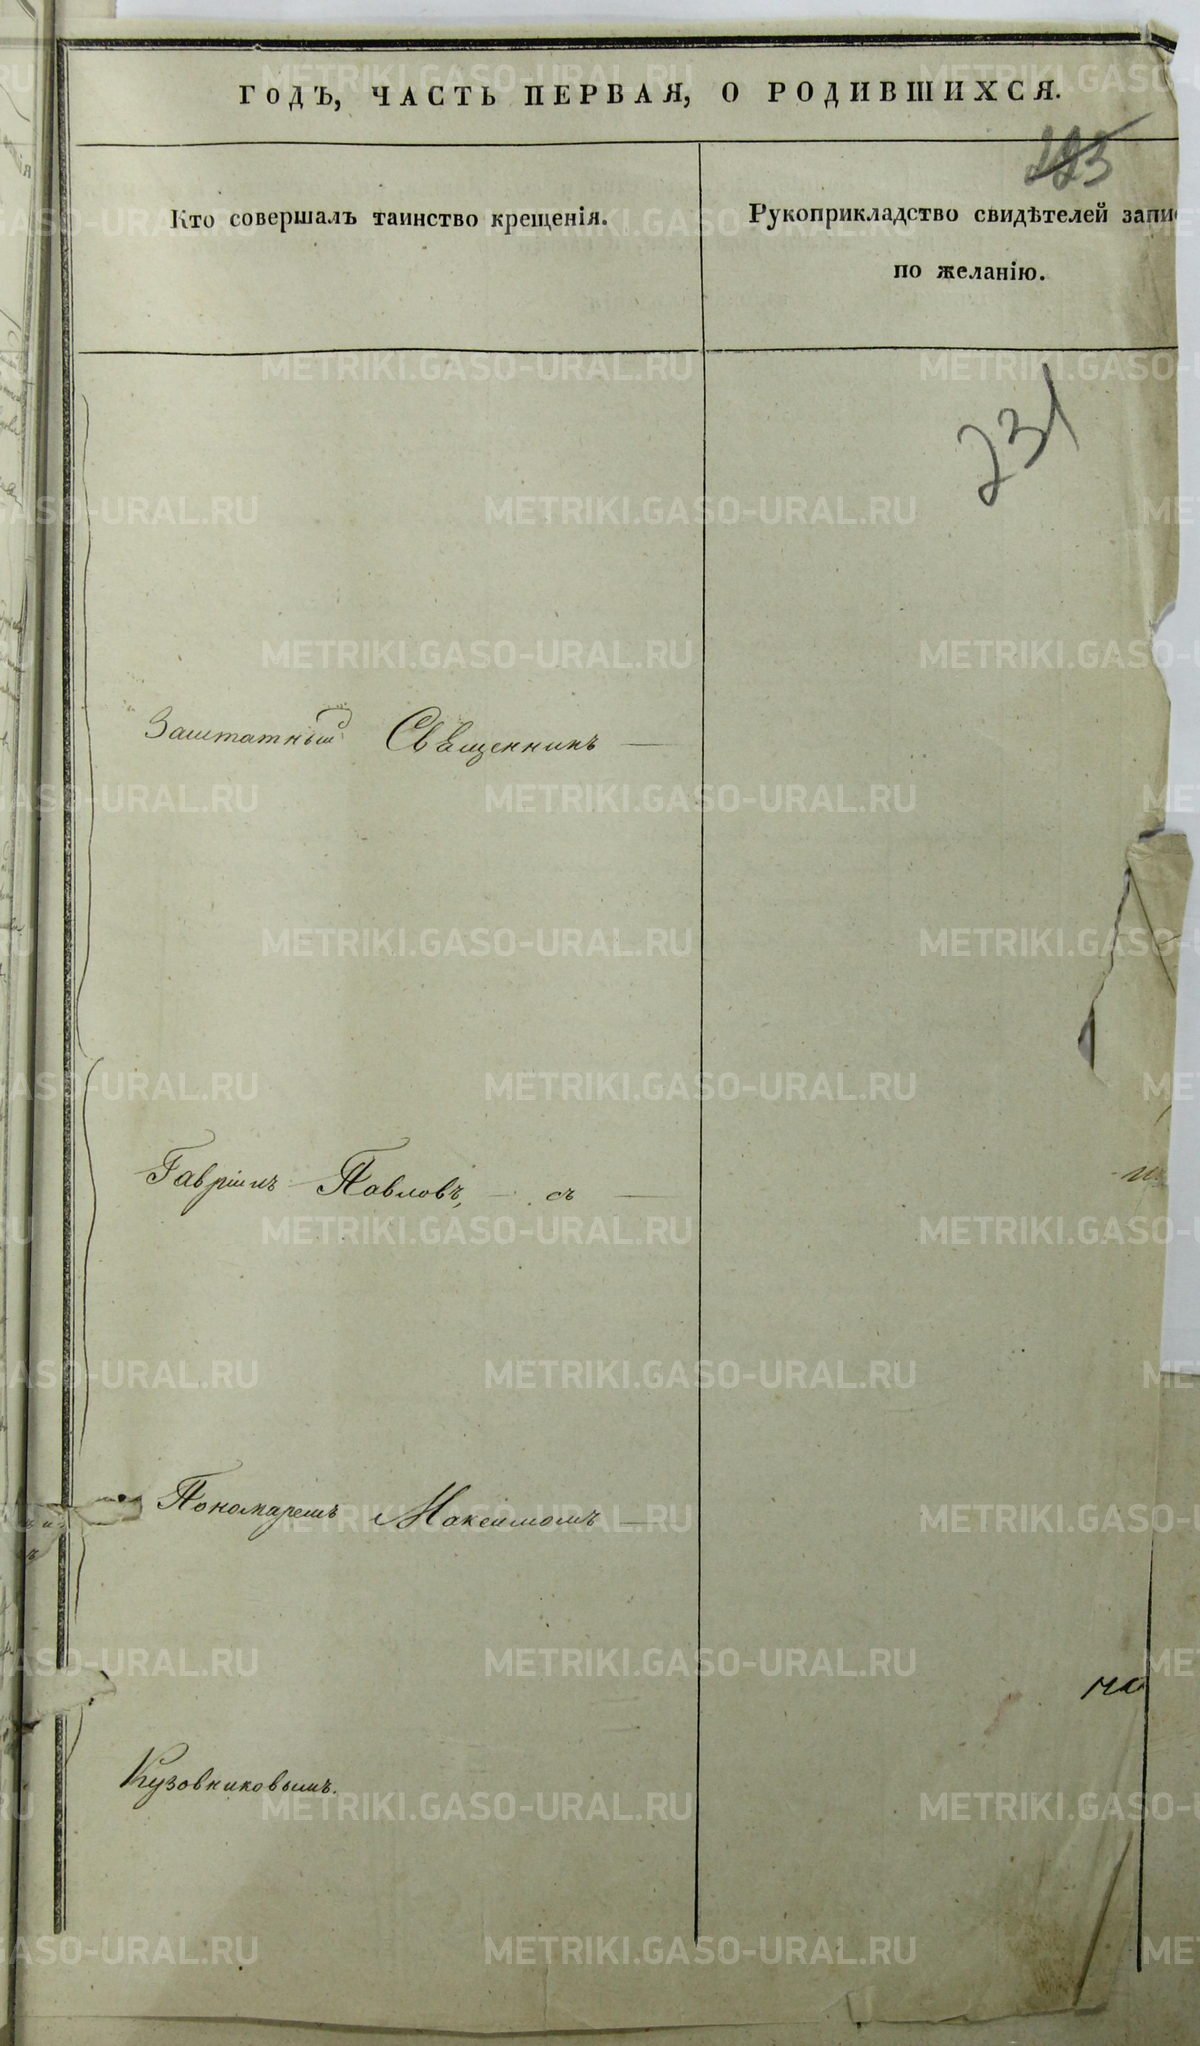 ГОДЪ, ЧАСТЬ ПЕРВАЯ, О РОДИВШИХСЯ.
223
Кто совершалъ таинство крещенія.
Рукоприкладство свидѣтелей запи
по желанію.
231
Заштатный Священникъ —
Гавріилъ Павловъ, — съ —
Пономаремъ Максимомъ —
но
Кузовниковымъ.
METRIKI.GASO-URAL.RU